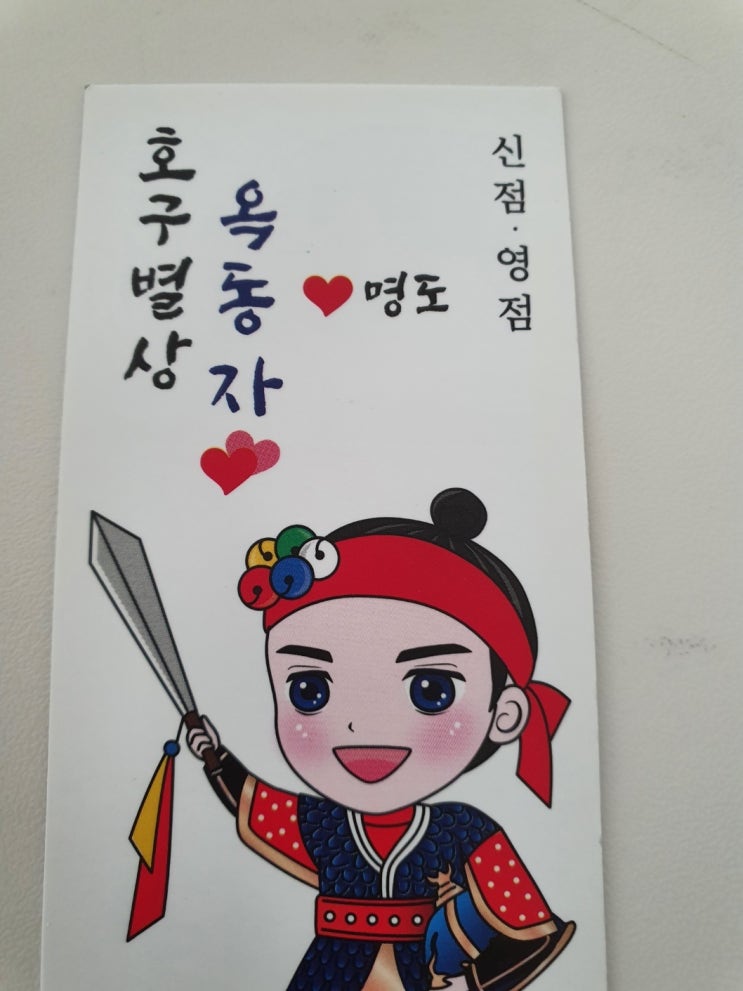 호구별상
옥동자
명도
신점·영점